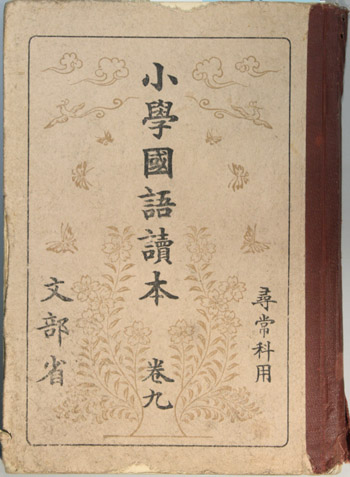 尋常科用
小學國語讀本
卷九
文部省